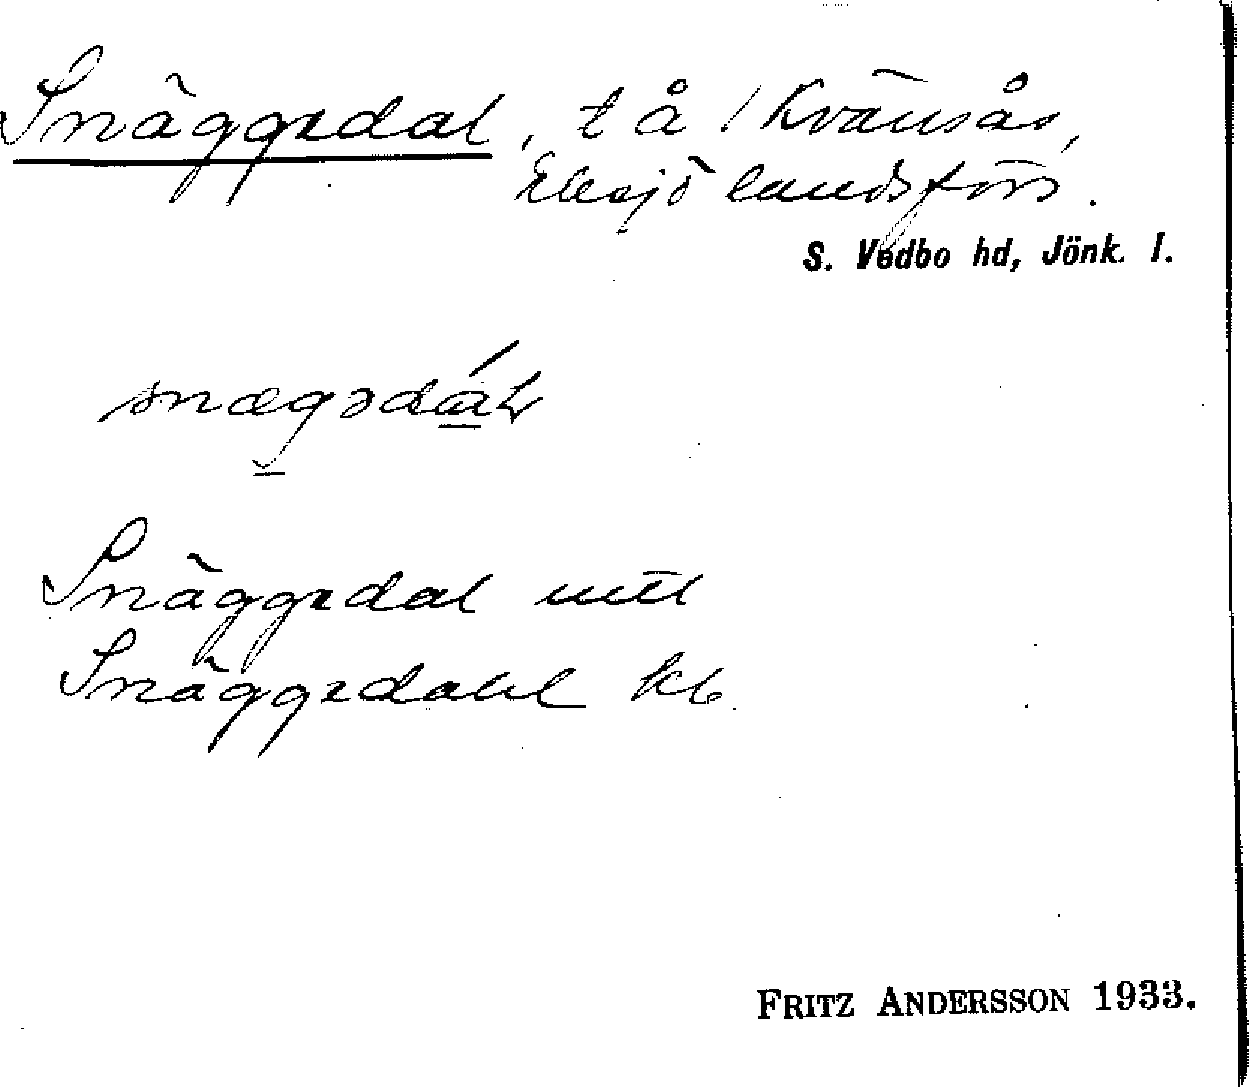 Snäggedal, t å / Kvänsås,
Eksjö landsförs.
S. Vedbo hd, Jönk. l.
snægədáɫ
Snäggedal mtl
Snäggedahl kb
FRITZ ANDERSSON 1933.